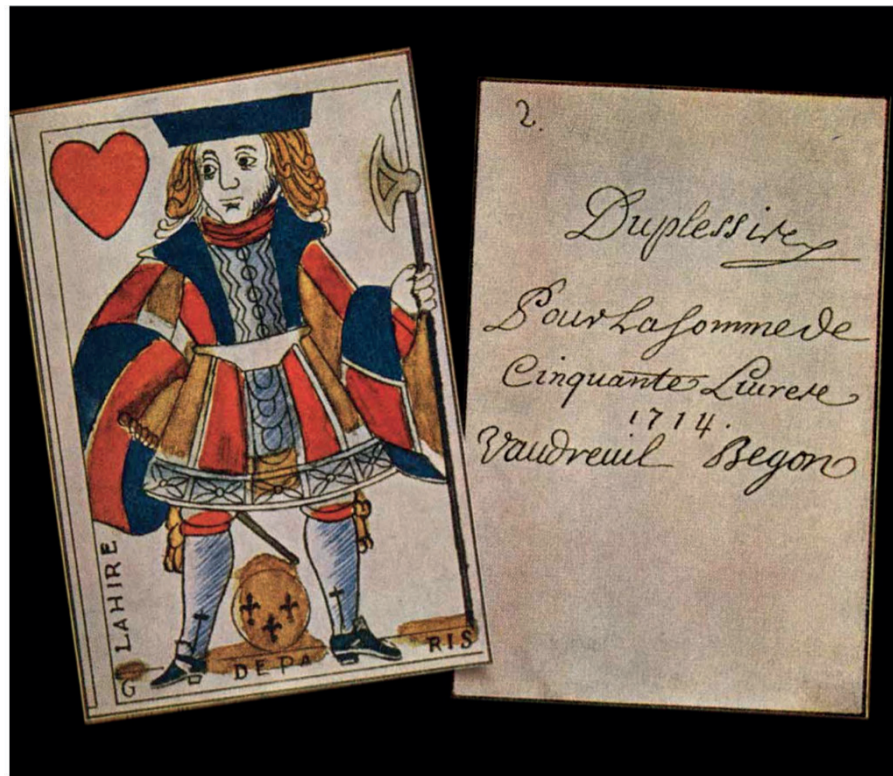 LAHIRE
G DEPA RIS
2.
Duplessis
Pour La Somme de
Cinquante Livres
1714.
Vaudreuil Begon